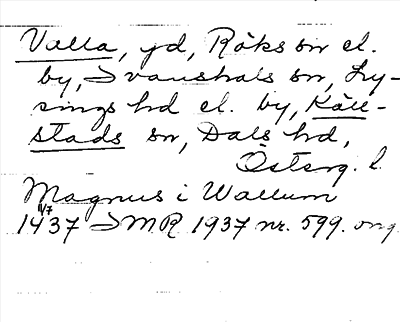 Valla, gd, Röks sn el.
by, Svanshals sn, Ly-
sings hd el. by, Käll-
stads sn, Dals hd,
Östерg. l.
Magnus i Wallum
11/7
1437 SMR 1937 nr. 599. orig.